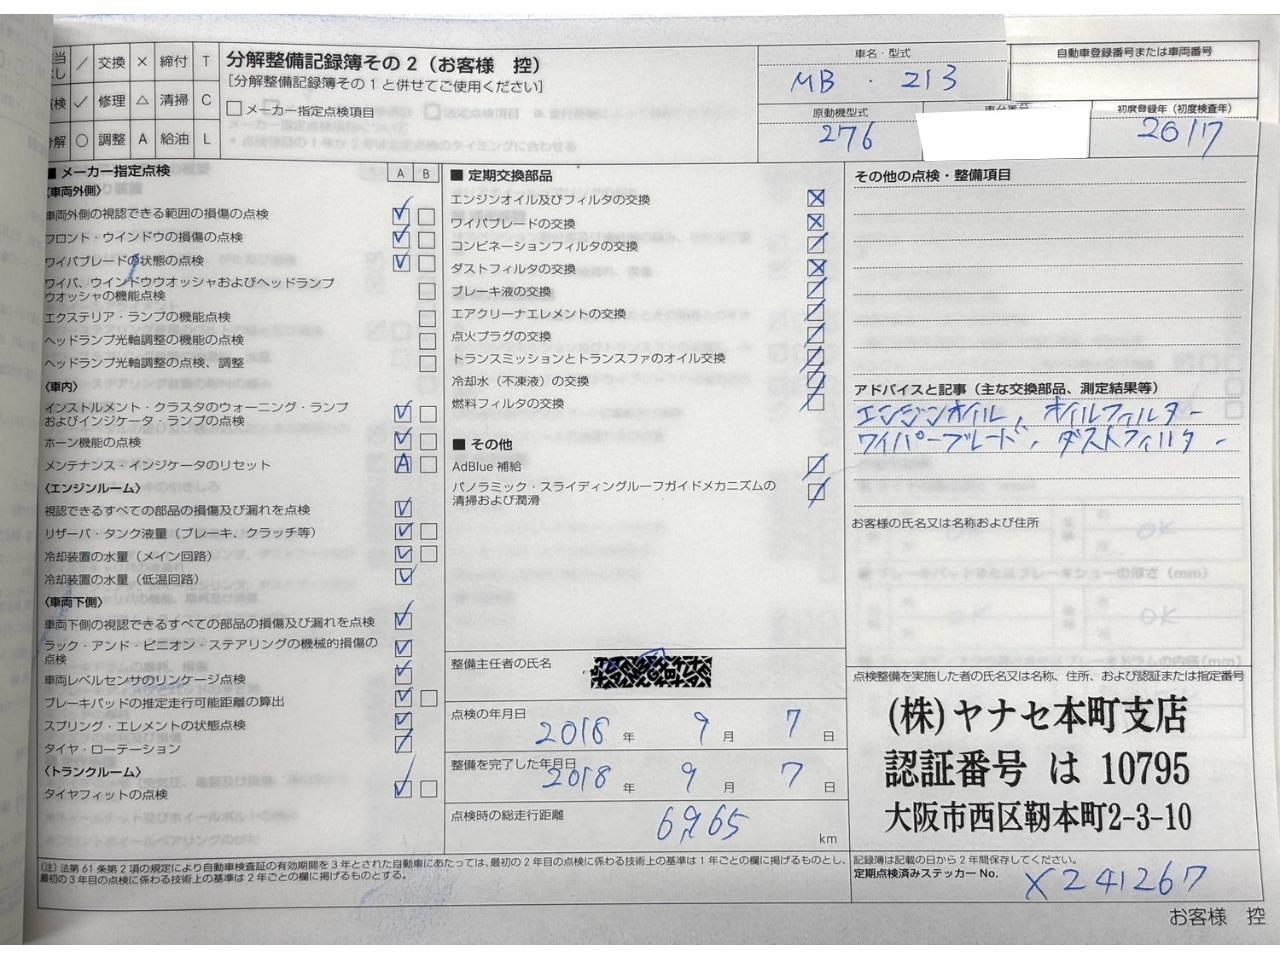 交換 × 締付 T
点検 ✓ 修理 △ 清掃 C
分解 ○ 調整 A 給油 L
分解整備記録簿その2(お客様 控)
[分解整備記録簿その1と併せてご使用ください]
メーカー指定点検項目
車名・型式
MB・213
自動車登録番号または車両番号
原動機型式
276
初度登録年(初度検査年)
2017
■ メーカー指定点検 A B
〈車両外側〉
車両外側の視認できる範囲の損傷の点検
フロント・ウインドウの損傷の点検
ワイパブレードの状態の点検
ワイパ、ウインドウウオッシャおよびヘッドランプ
ウオッシャの機能点検
エクステリア・ランプの機能点検
ヘッドランプ光軸調整の機能の点検
ヘッドランプ光軸調整の点検、調整
〈車内〉
インストルメント・クラスタのウォーニング・ランプ
およびインジケータ・ランプの点検
ホーン機能の点検
メンテナンス・インジケータのリセット A
〈エンジンルーム〉
視認できるすべての部品の損傷及び漏れを点検
リザーバ・タンク液量(ブレーキ、クラッチ等)
冷却装置の水量(メイン回路)
冷却装置の水量(低温回路)
〈車両下側〉
車両下側の視認できるすべての部品の損傷及び漏れを点検
ラック・アンド・ピニオン・ステアリングの機械的損傷の
点検
車両レベルセンサのリンケージ点検
ブレーキパッドの推定走行可能距離の算出
スプリング・エレメントの状態点検
タイヤ・ローテーション
〈トランクルーム〉
タイヤフィットの点検
■ 定期交換部品
エンジンオイル及びフィルタの交換
ワイパブレードの交換
コンビネーションフィルタの交換
ダストフィルタの交換
ブレーキ液の交換
エアクリーナエレメントの交換
点火プラグの交換
トランスミッションとトランスファのオイル交換
冷却水(不凍液)の交換
燃料フィルタの交換
■ その他
AdBlue 補給
パノラミック・スライディングルーフガイドメカニズムの
清掃および潤滑
整備主任者の氏名
点検の年月日
2018 年 9 月 7 日
整備を完了した年月日
2018 年 9 月 7 日
点検時の総走行距離
6965 km
その他の点検・整備項目
アドバイスと記事(主な交換部品、測定結果等)
エンジンオイル、オイルフィルター
ワイパーブレード、ダストフィルター
お客様の氏名又は名称および住所
点検整備を実施した者の氏名又は名称、住所、および認証または指定番号
(株)ヤナセ本町支店
認証番号 は 10795
大阪市西区靭本町2-3-10
(注)法第61条第2項の規定により自動車検査証の有効期間を3年とされた自動車にあたっては、最初の2年目の点検に係わる技術上の基準は1年ごとの欄に掲げるものとし、
最初の3年目の点検に係わる技術上の基準は2年ごとの欄に掲げるものとする。
記録簿は記載の日から2年間保存してください。
定期点検済みステッカー No. X241267
お客様 控